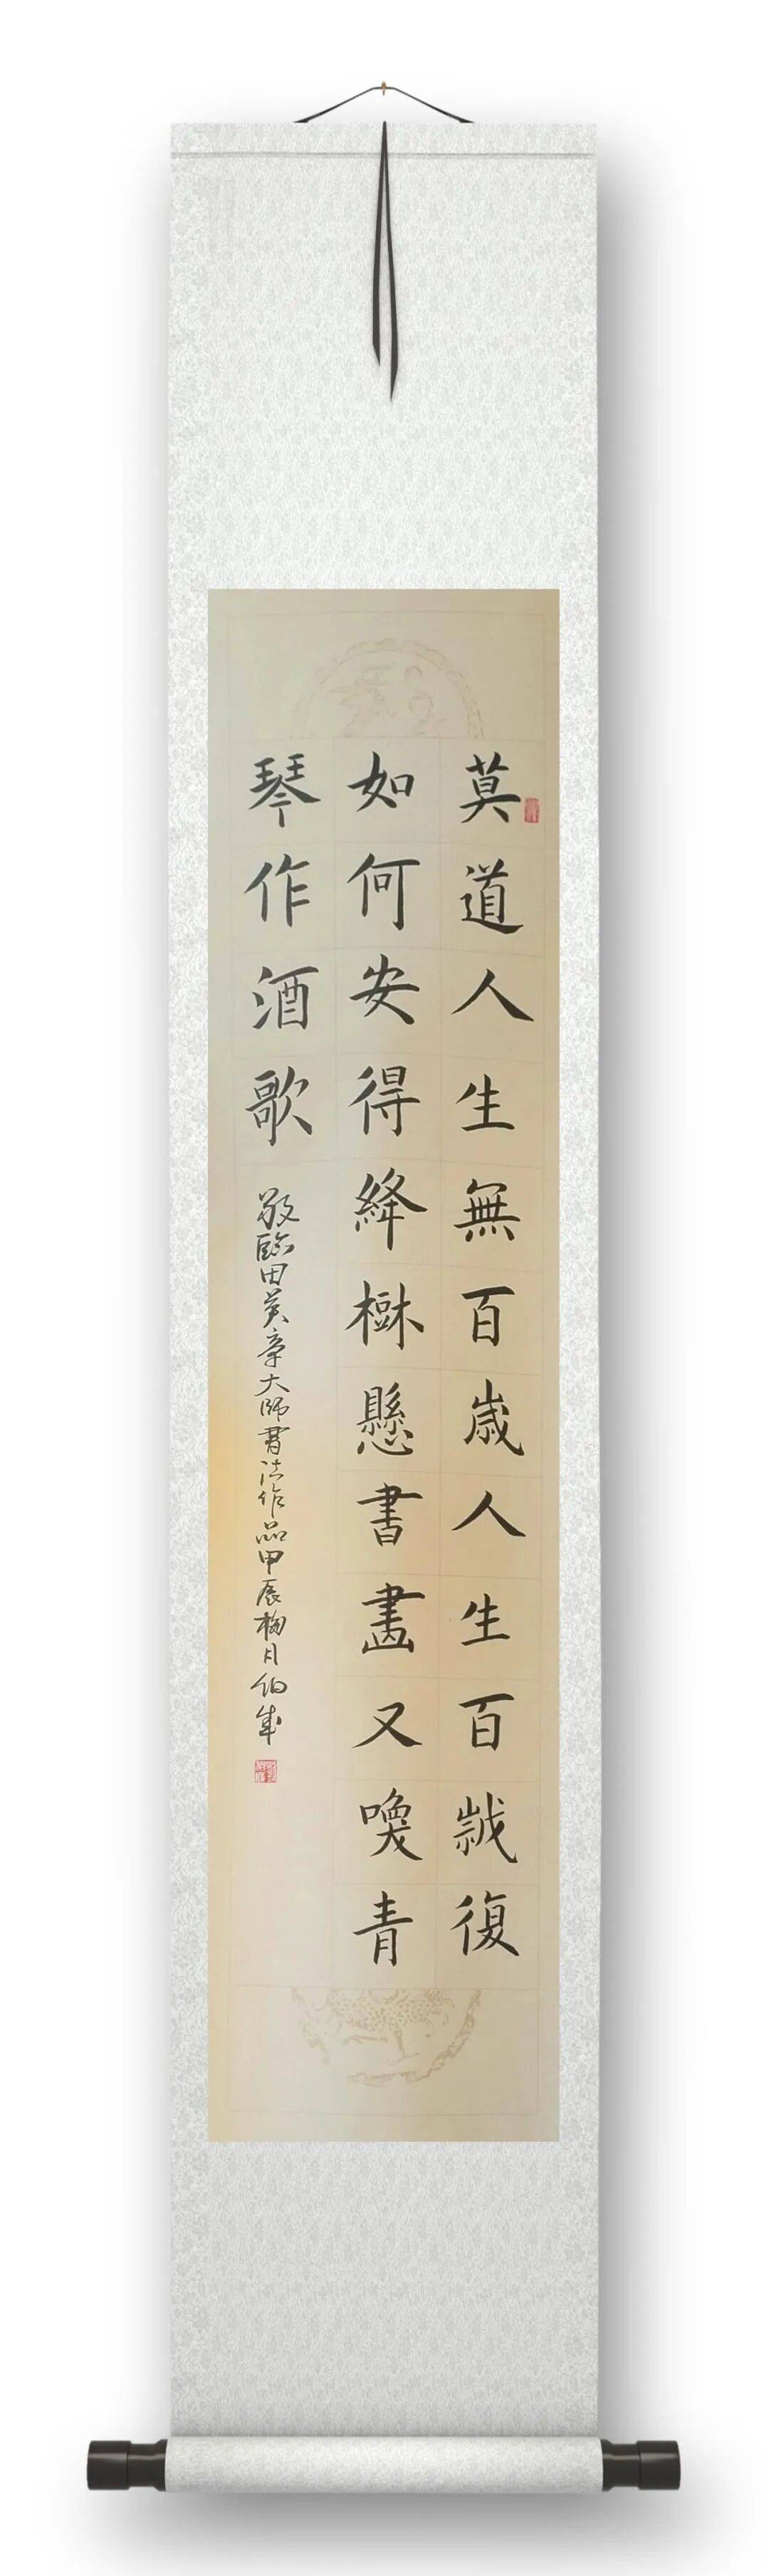 莫道人生無百歳人生百歲復
如何安得絳樹懸書畫又喚青
琴作酒歌
敬臨田英章大師書法作品甲辰月伯